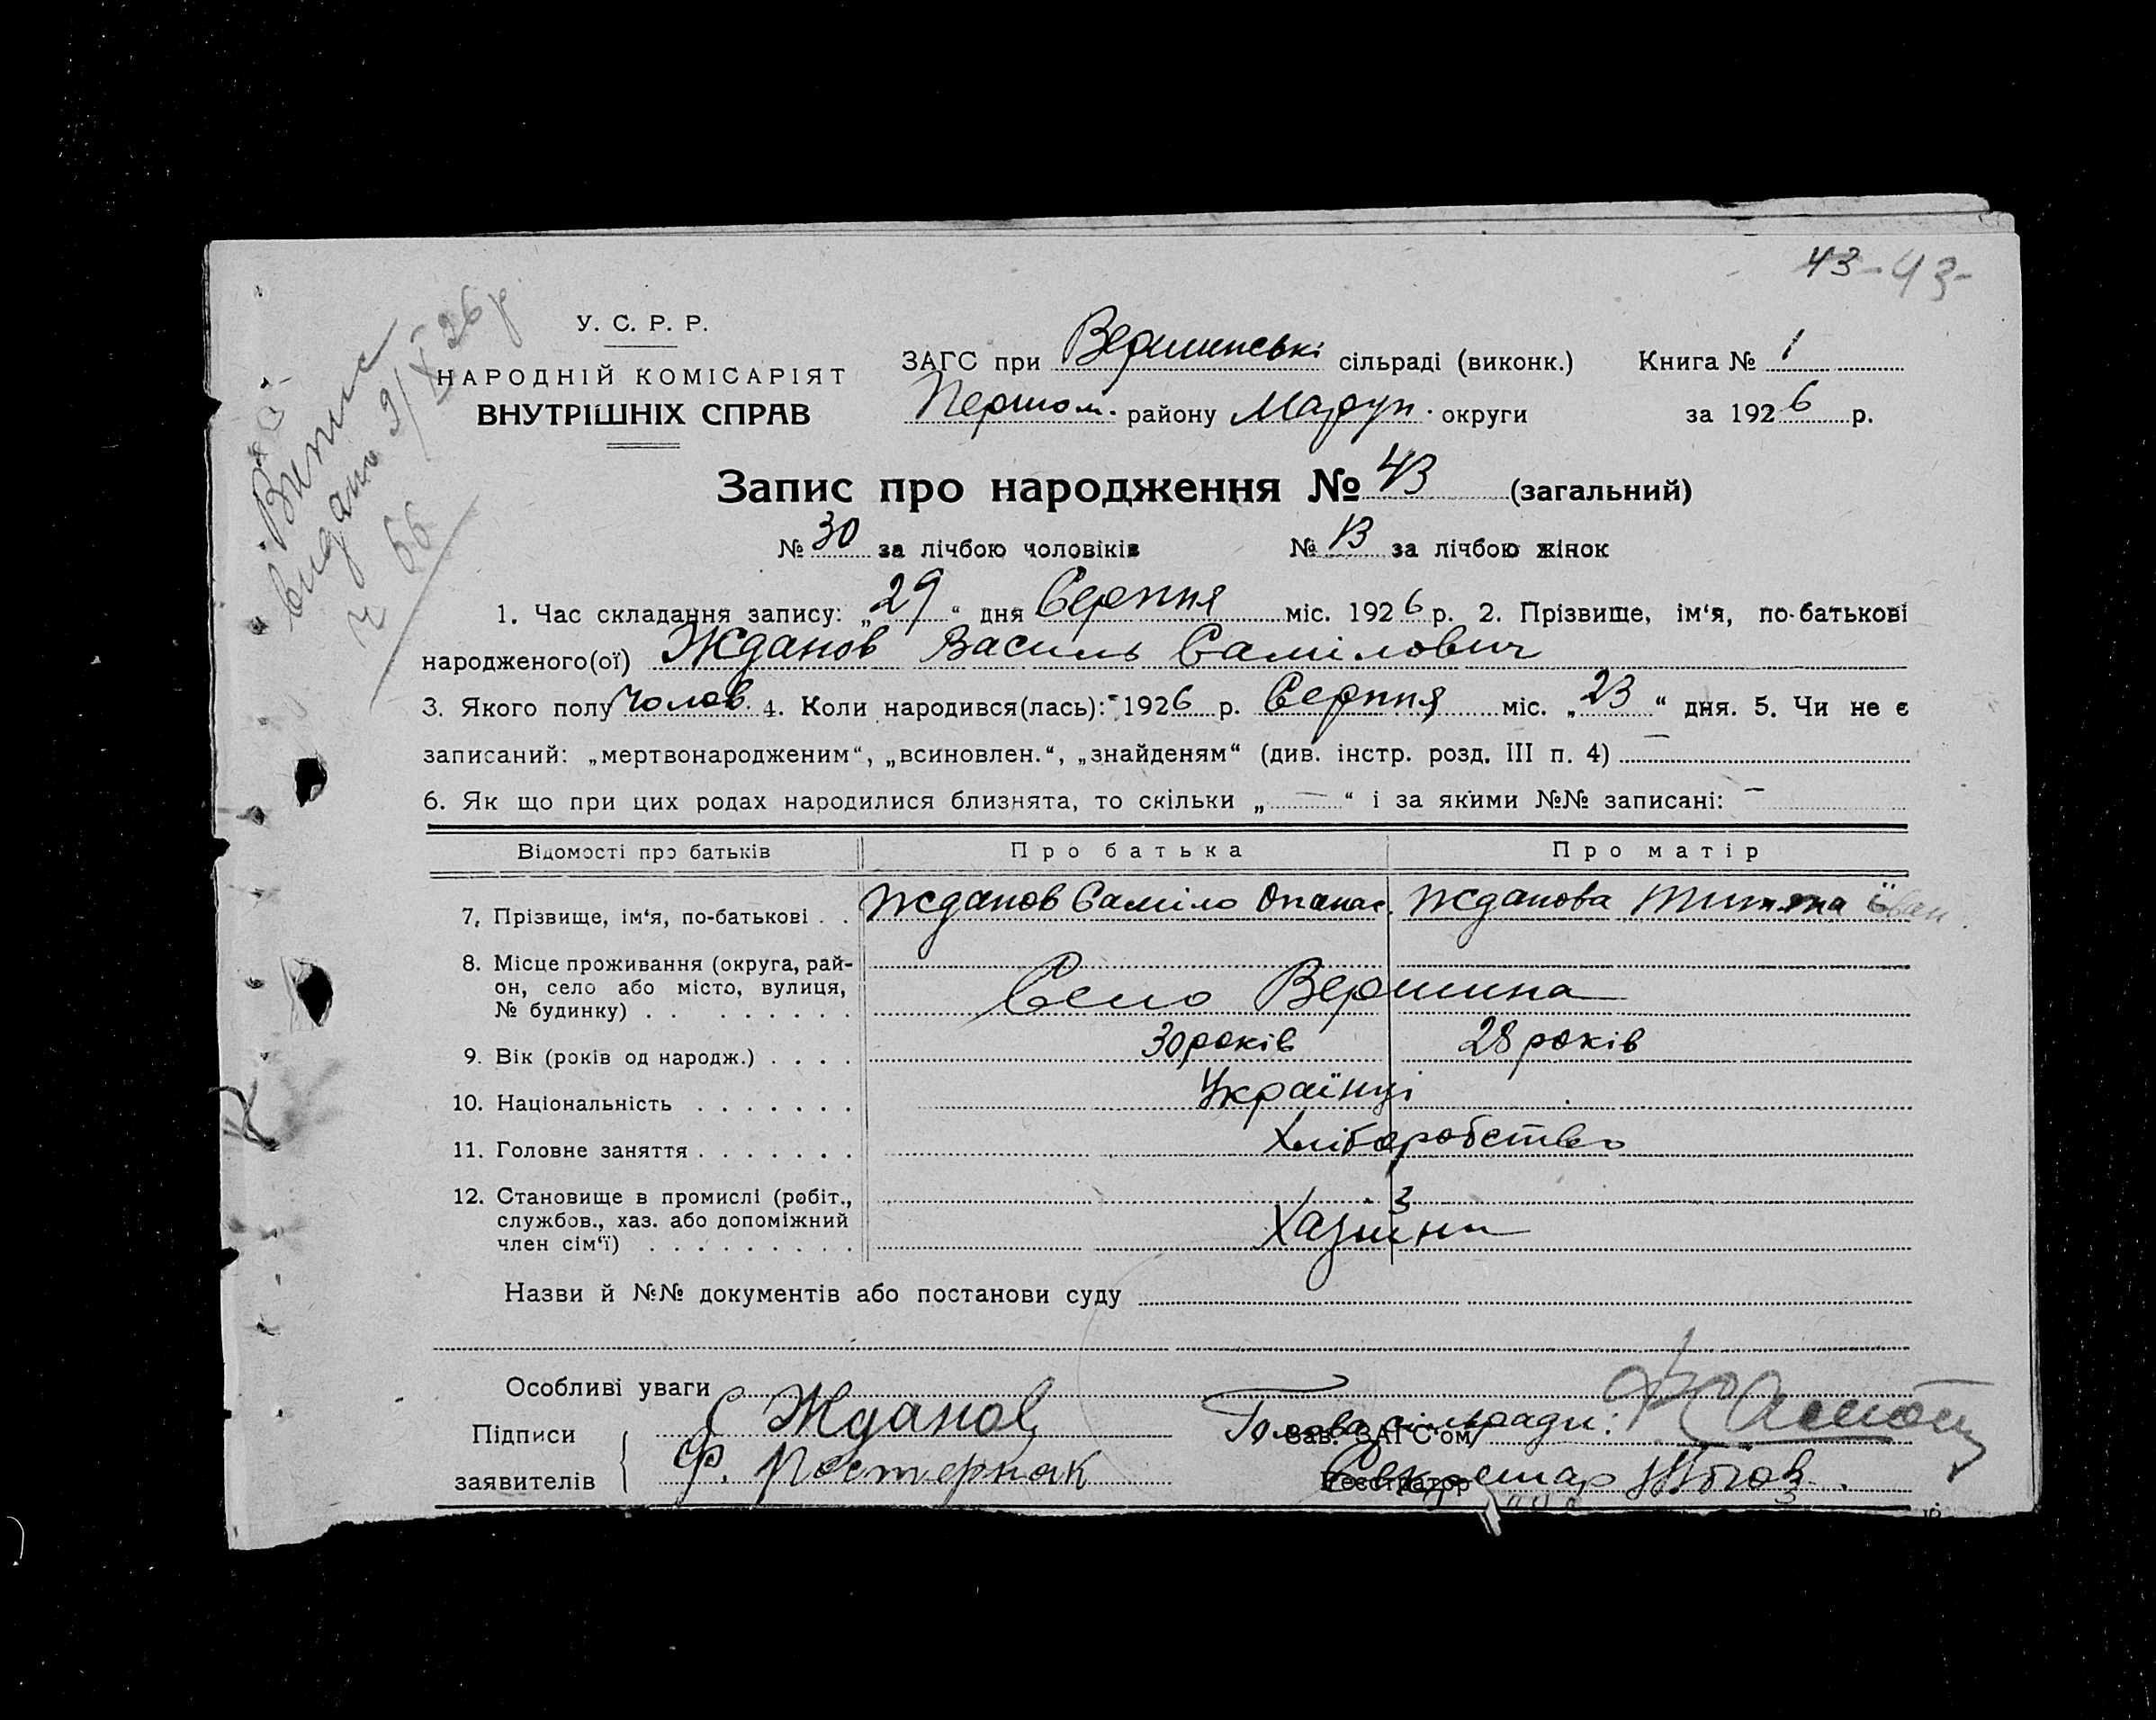 43 - 43 -
Витис
видано 9/IX 26 р.
ч 66
У. С. Р. Р.
НАРОДНІЙ КОМІСАРІЯТ
ВНУТРІШНІХ СПРАВ
ЗАГС при Вершинські сільраді (виконк.) Книга № 1
Першом. району Маріуп. округи за 1926 р.
Запис про народження № 43 (загальний)
№ 30 за лічбою чоловіків № 13 за лічбою жінок
1. Час складання запису: „29“ дня Серпня міс. 1926 р. 2. Прізвище, ім‘я, по-батькові
народженого(ої) Жданов Василь Самілович
3. Якого полу чолов. 4. Коли народився(лась): 1926 р. Серпня міс. „23“ дня. 5. Чи не є
записаний: „мертвонародженим“, „всиновлен.“, „знайденям“ (див. інстр. розд. III п. 4) —
6. Як що при цих родах народилися близнята, то скільки „—“ і за якими №№ записані: —
Відомості про батьків Про батька Про матір
7. Прізвище, ім‘я, по-батькові . . Жданов Саміло Опанас. Жданова Титяна Іван.
8. Місце проживання (округа, рай-
он, село або місто, вулиця,
№ будинку) . . . . . . . . . Село Вершина
9. Вік (років од народж.) . . . . 30 років 28 років
10. Національність . . . . . . . Українці
11. Головне заняття . . . . . . . Хліборобство
12. Становище в промислі (робіт.,
службов., хаз. або допоміжний
член сім‘ї) . . . . . . . . . Хазяїни
Назви й №№ документів або постанови суду
Особливі уваги
Підписи С Жданов Голова сільради:
Зав. ЗАГС‘ом
заявителів Ф. Постернак Секретар
Реєстратор